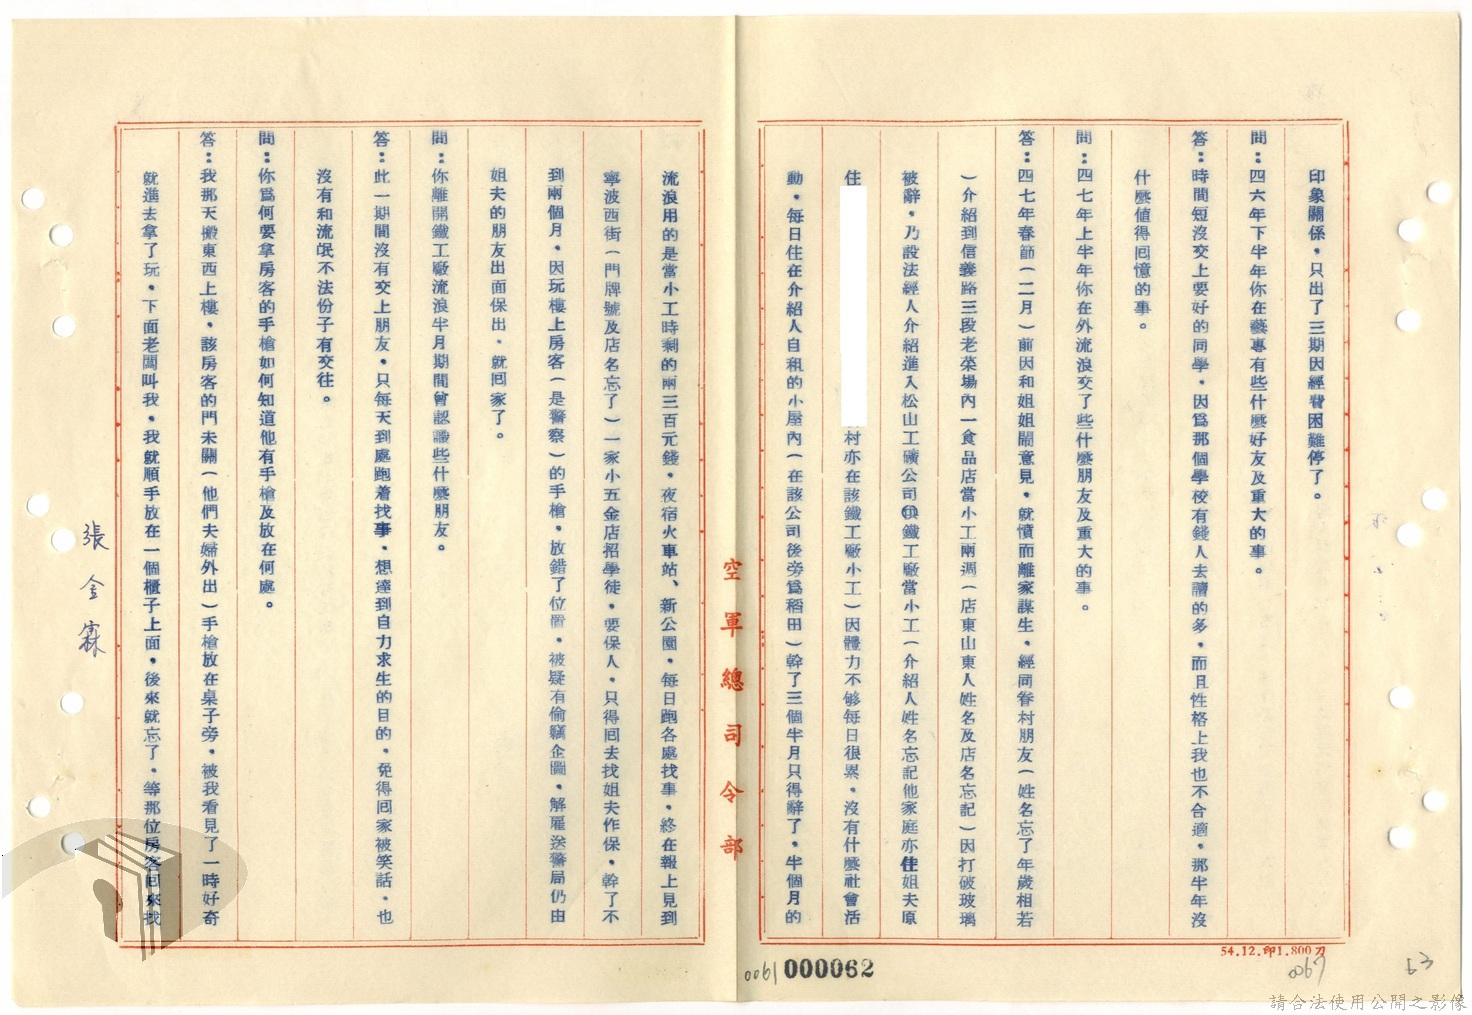 印象關係，只出了三期因經費困難停了。
問：四六年下半年你在藝專有些什麼好友及重大的事。
答：時間短沒交上要好的同學，因爲那個學校有錢人去讀的多，而且性格上我也不合適，那半年沒
什麼值得回憶的事。
問：四七年上半年你在外流浪交了些什麼朋友及重大的事。
答：四七年春節（二月）前因和姐姐鬧意見，就憤而離家謀生，經同眷村朋友（姓名忘了年歲相若
）介紹到信義路三段老菜場內一食品店當小工兩週（店東山東人姓名及店名忘記）因打破玻璃
被辭，乃設法經人介紹進入松山工礦公司鐵工廠當小工（介紹人姓名忘記他家庭亦住姐夫原
住
村亦在該鐵工廠小工）因體力不够每日很累，沒有什麼社會活
動，每日住在介紹人自租的小屋內（在該公司後旁爲稻田）幹了三個半月只得辭了，半個月的
流浪用的是當小工時剩的兩三百元錢，夜宿火車站、新公園，每日跑各處找事，終在報上見到
寧波西街（門牌號及店名忘了）一家小五金店招學徒，要保人，只得回去找姐夫作保，幹了不
到兩個月，因玩樓上房客（是警察）的手槍，放錯了位置，被疑有偷竊企圖，解雇送警局仍由
姐夫的朋友出面保出，就回家了。
問：你離開鐵工廠流浪半月期間曾認識些什麼朋友。
答：此一期間沒有交上朋友，只每天到處跑着找事，想達到自力求生的目的，免得回家被笑話，也
沒有和流氓不法份子有交往。
問：你爲何要拿房客的手槍如何知道他有手槍及放在何處。
答：我那天搬東西上樓，該房客的門未關（他們夫婦外出）手槍放在桌子旁，被我看見了一時好奇
就進去拿了玩，下面老闆叫我，我就順手放在一個櫃子上面，後來就忘了，等那位房客回來找
張金霖
空軍總司令部
54.12.印1.800刀
0061
000062
0067
63
請合法使用公開之影像